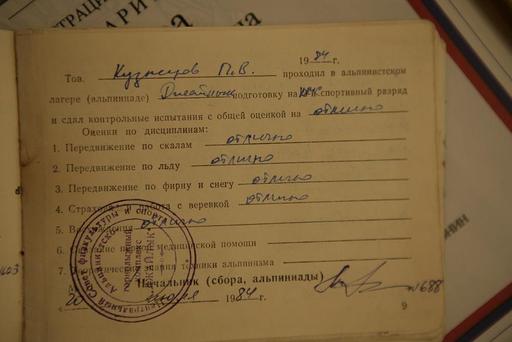 1984 г.
Тов. Кузнецов П.В. проходил в альпинистском
лагере (альпиниаде) Джайлык подготовку на спортивный разряд
и сдал контрольные испытания с общей оценкой на отлично
Оценки по дисциплинам:
1. Передвижение по скалам отлично
2. Передвижение по льду отлично
3. Передвижение по фирну и снегу отлично
4. работа с веревкой отлично
5. отлично
6. медицинской помощи
7. техники альпинизма
Начальник (сбора, альпиниады)
20 1984 г.
9